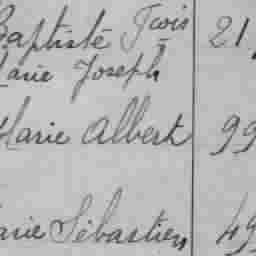 Baptiste Fçois 21,
Marie Joseph
Marie Albert 99
Marie Sébastien 49